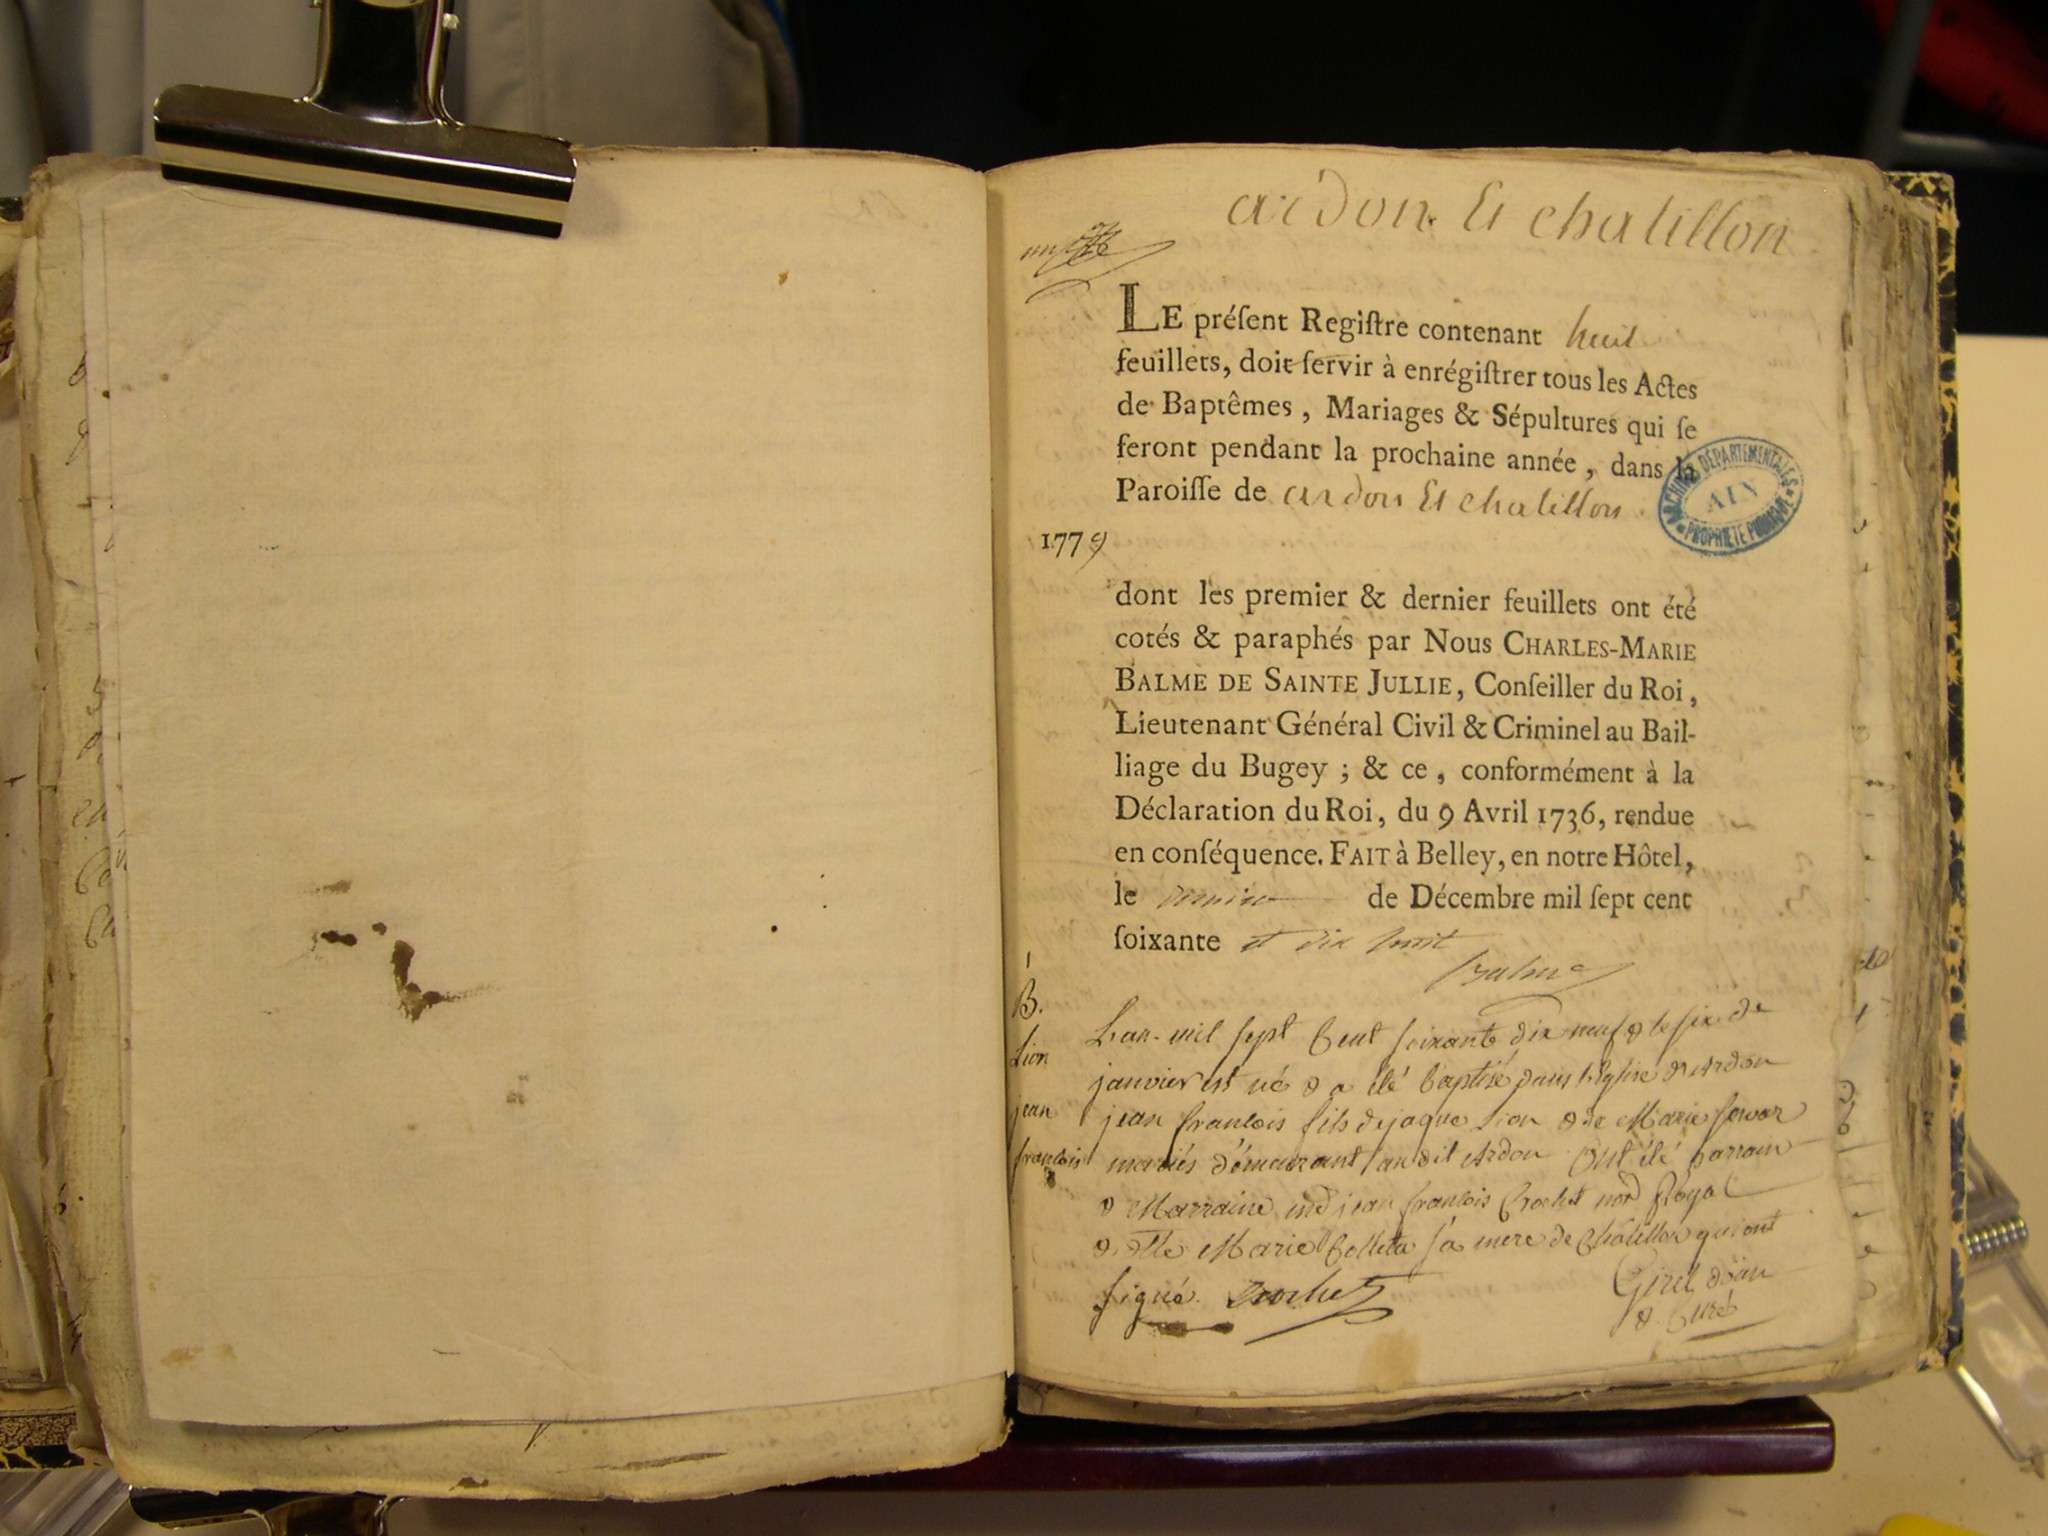 ardon Et chatillon
LE préſent Regiſtre contenant huit
feuillets, doit ſervir à enrégiſtrer tous les Actes
de Baptêmes, Mariages & Sépultures qui ſe
feront pendant la prochaine année, dans la
Paroiſſe de ardon Et chatillon
ARCHIVES DÉPARTEMENTALES
AIN
PROPRIÉTÉ PUBLIQUE
1779
dont les premier & dernier feuillets ont été
cotés & paraphés par Nous CHARLES-MARIE
BALME DE SAINTE JULLIE, Conſeiller du Roi,
Lieutenant Général Civil & Criminel au Bail-
liage du Bugey ; & ce, conformément à la
Déclaration du Roi, du 9 Avril 1736, rendue
en conſéquence. FAIT à Belley, en notre Hôtel,
le de Décembre mil ſept cent
ſoixante et dix huit
Balme
B.
Lion
jean
francois
L'an mil sept Cent soixante dix neuf & le six de
janvier est né & a été baptisé dans l'Eglise d'Ardon
jean francois fils de jaque Lion & de Marie
mariés démeurant au dit Ardon Ont été parrain
& Marraine jean francois Crochet Royal
& Marie Colleta sa mere de Châtillon qui ont
signé. Crochet
Girel doïen
& Curé